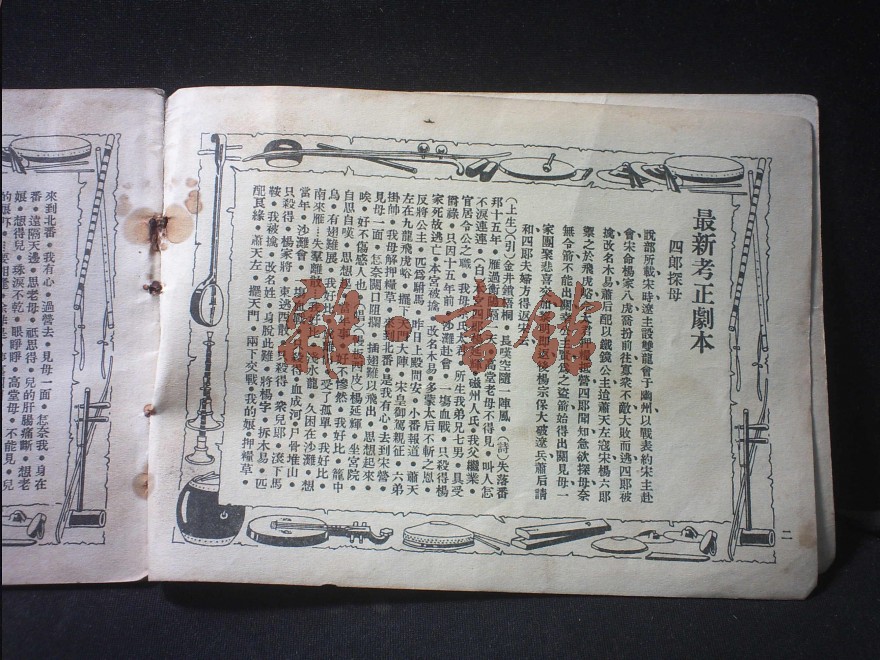 最新考正劇本
四郎探母
說部所載宋時遼主設雙龍會于幽州以戰表約宋主赴
會宋命楊家八虎喬扮前往寡衆不敵大敗而逃四郎被
擒改名木易蕭后配以鐵鏡公主迨蕭天左寇宋楊六郎
禦之於飛虎峪佘太君押糧探營四郎聞知急欲探母奈
無令箭不能出關幸公主之盜箭始得出關見母一
家團聚悲喜交卽返後楊宗保大破遼兵蕭后請
和四郎夫婦方得返宋
(上生)(引)金井鎖梧桐・長嘆空隨一陣風・(詩)失落番
邦十五年・雁過衡陽各一天・高堂老母不得見・叫人怎
不淚連連・(白)本宮四郎延輝・磁州人氏・我父繼業・
官居令公之職・我母佘氏太君・所生我弟兄七男・具受
爵祿・只因十五年前・沙灘赴會・一塲血戰・只殺得楊
家死故逃亡・本宮被擒・改名木易・多蒙太后不斬之恩・
反將公主・匹爲駙馬・昨日上殿問安・小番報道・蕭天
左在九龍飛虎峪・擺下天門大陣・宋皇御駕親征・六弟
掛帥・我母解押糧草・來到北番・是我有心・去到宋營・
見母一面・怎奈關口阻攔・插翅難以飛出・思想起來・
唉・好不傷感人也・(唱)(西皮)楊延輝・坐宮院・
自思自嘆・思想起・當年事・好不慘然・我好比・籠中
鳥・有翅難展・我好比・受了孤單・我好比・
南來雁・失羣離散・我好比・淺水龍・久困在沙灘・想
當年・沙灘會・一塲血戰・只殺得・血成河・尸骨堆山・
只殺得・楊家將・東逃西散・只殺得・衆兒郎・滾下馬
鞍・我被擒・改名姓・身脫此難・將楊字・拆木易・匹
配良緣・蕭天左・擺天門・兩下交戰・我的娘・押糧草・
二
來到北番・我有心・過營去・見母一面・怎奈我・身在
番・遠隔天邊・思老母・祇思得・兒的肝腸痛斷・想老
娘・想得兒・珠淚不乾・眼睜睜・高堂母・不能見・兒
雅・書館